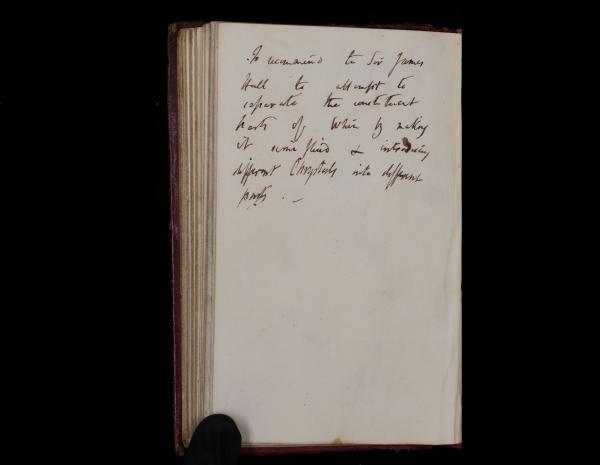 To recommend to Sir James
Hall to attempt to
separate the constituent
parts of Whin by making
it semifluid & introducing
different Chrystals into different
parts. —